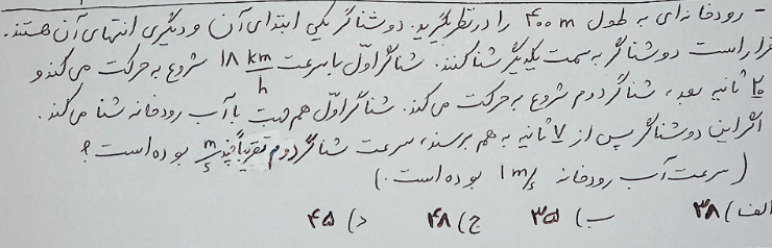 - رودخانه‌ای به طول ۴۰۰ m را در نظر بگیرید. دو شناگر یکی ابتدای آن و دیگری انتهای آن هستند.
قرار است دو شناگر به سمت یکدیگر شنا کنند. شناگر اوّل با سرعت ۱۸ km/h شروع به حرکت می‌کند و
۲۰ ثانیه بعد، شناگر دوم شروع به حرکت می‌کند. شناگر اوّل هم جهت با آب رودخانه شنا می‌کند.
اگر این دو شناگر پس از ۷ ثانیه به هم برسند، سرعت شناگر دوم تقریباً چند m/s بوده است؟
(سرعت آب رودخانه ۱ m/s بوده است.)
الف) ۳۸ ب) ۳۵ ج) ۴۸ د) ۴۵